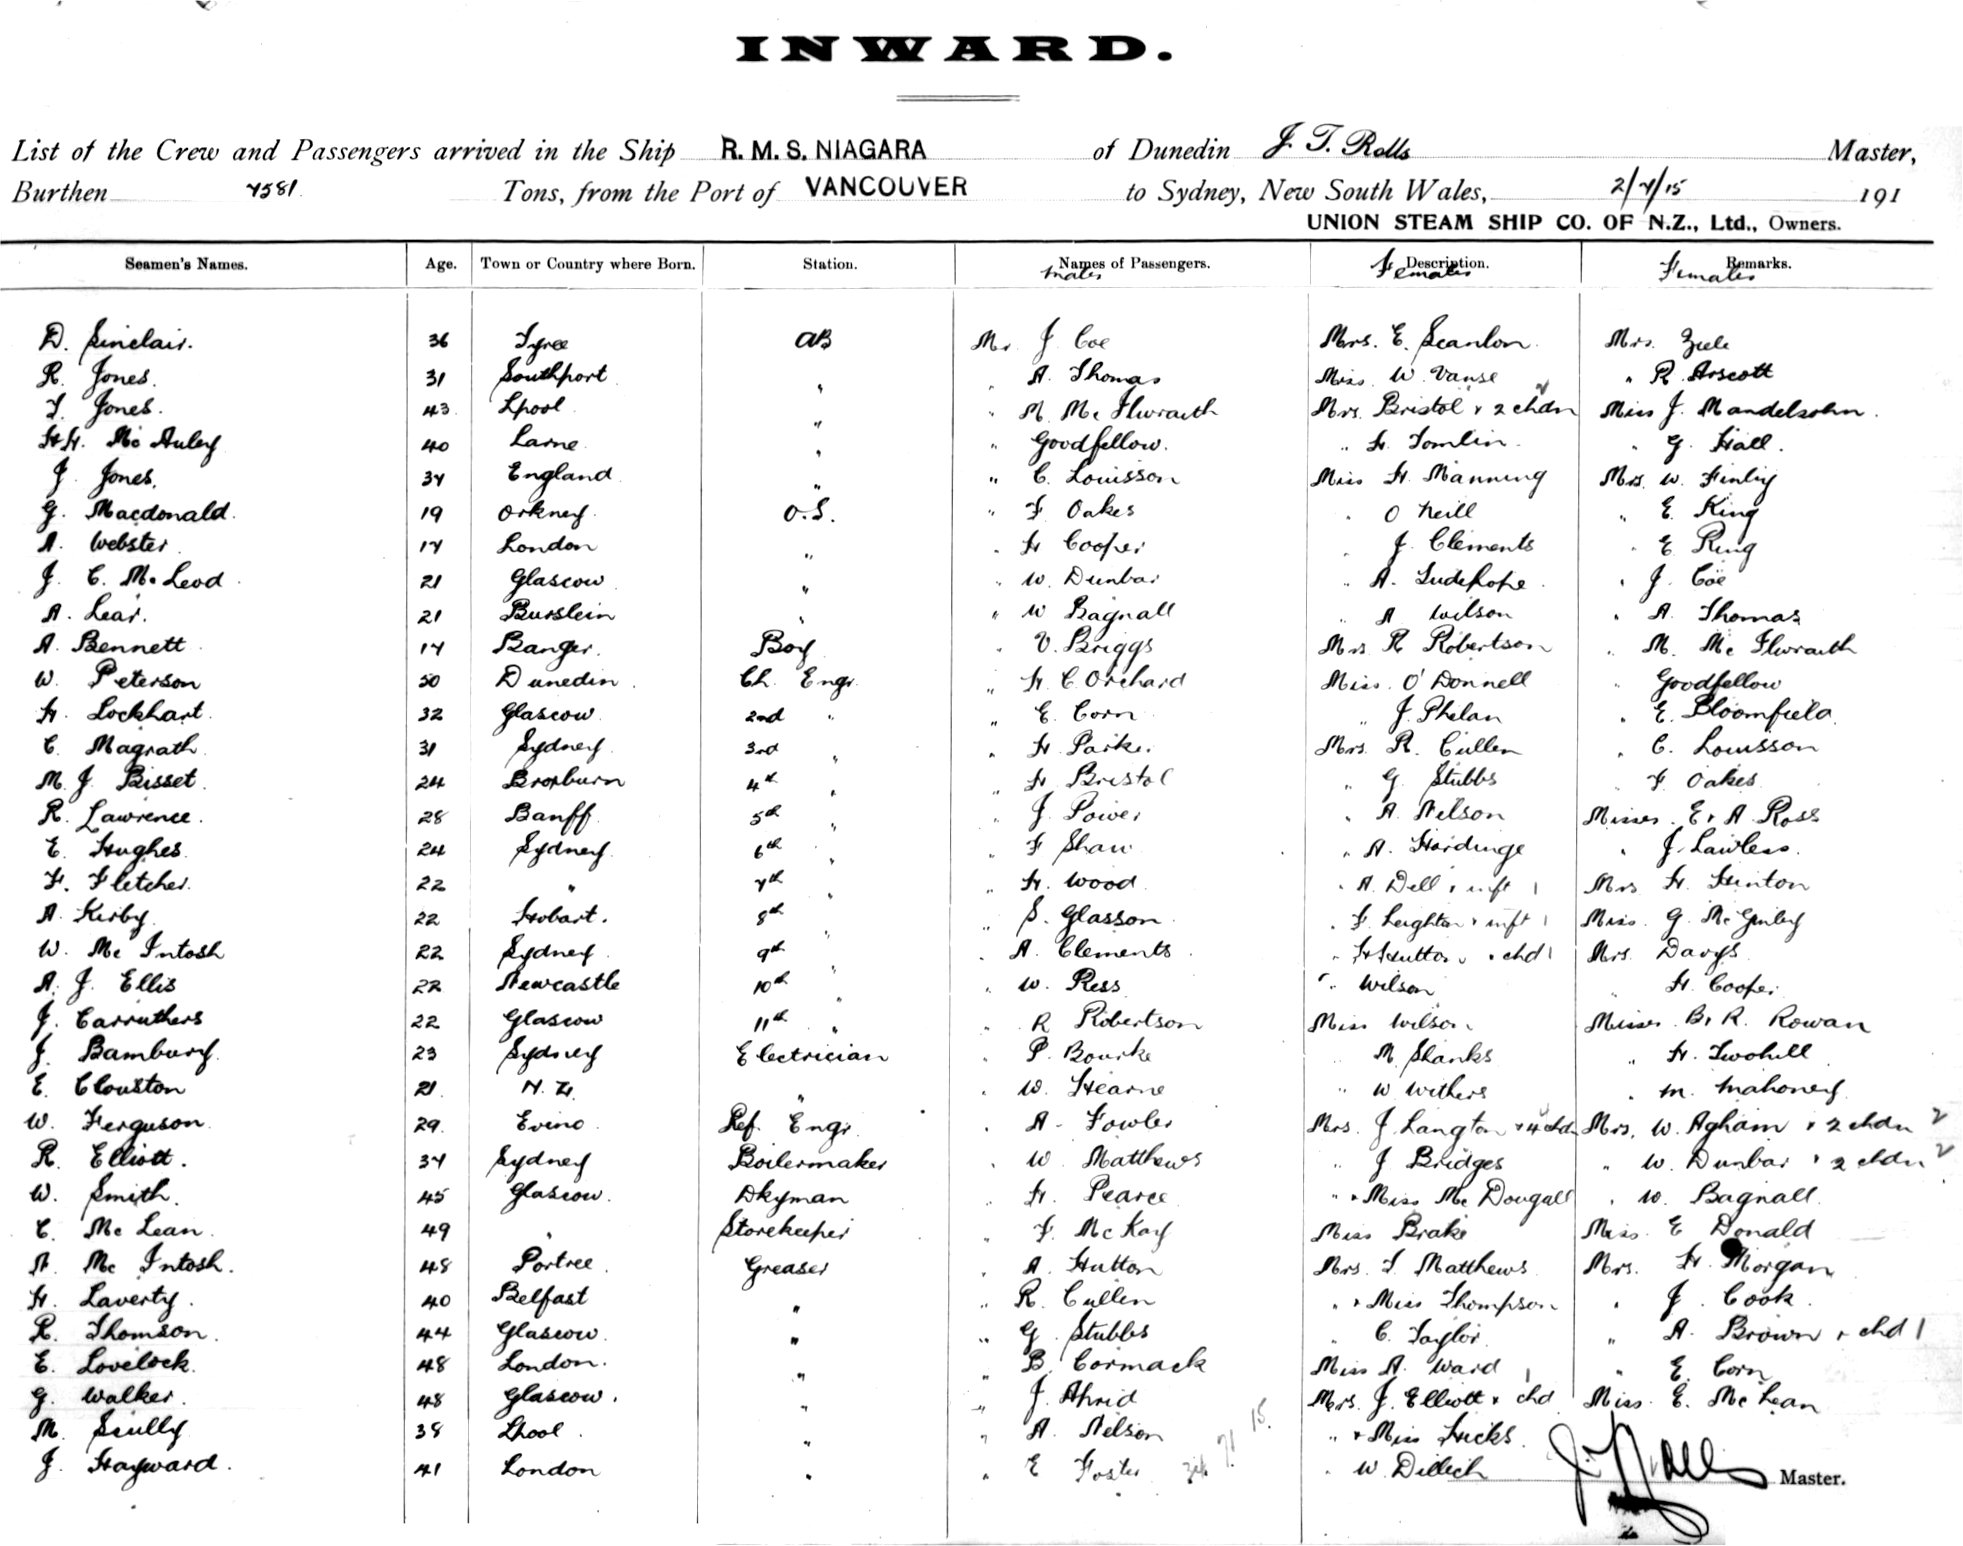 INWARD.
List of the Crew and Passengers arrived in the Ship R. M. S. NIAGARA of Dunedin J. T. Rolls Master,
Burthen 7581 Tons, from the Port of VANCOUVER to Sydney, New South Wales, 2/7/15 191
UNION STEAM SHIP CO. OF N.Z., Ltd., Owners.
Seamen's Names. Age. Town or Country where Born. Station. Names of Passengers. Description. Remarks.
Males Females Females
D. Sinclair. 36 Tyree AB Mr. J Coe Mrs. E. Scanlon Mrs. Ziele
R. Jones. 31 Southport " " A. Thomas Miss W. Vanse " R. Arscott
T. Jones. 43 Lpool " " M. Mc Ilwraith Mrs. Bristol + 2 chdn 2 Miss J. Mandelsohn.
H. Mc Auley 40 Larne " " Goodfellow. " H. Tomlin. " G. Hall.
J. Jones. 37 England " " C. Louisson Miss H. Manning Mrs. W. Finlay
G. Macdonald. 19 Orkney O.S. " F Oakes " O Neill " E. King
A. Webster 17 London " " H Cooper " J. Clements " E Ring
J. C. McLeod 21 Glascow " " W. Dunbar " A. " J. Coe
A. Lear. 21 Burslein " " W Bagnall " A Wilson " A. Thomas
A. Bennett 17 Banger. Boy " V. Briggs Mrs R Robertson " M. Mc Ilwraith
W. Peterson 50 Dunedin Ch. Engr. " H. C. Orchard Miss. O'Donnell " Goodfellow
H. Lockhart. 32 Glascow 2nd " " E. Corn " J. Phelan " E. Bloomfield
C. Magrath 31 Sydney 3rd " " H. Parker Mrs. R. Cullen " C. Louisson
M. J. Bisset 24 Broxburn 4th " " H Bristol " G Stubbs " F Oakes
R. Lawrence. 28 Banff 5th " " J. Power " A. Nelson Misses. E. + A. Ross
E. Hughes 24 Sydney 6th " " F Shaw " A. Hardinge " J. Lawless.
F. Fletcher. 22 " 7th " " H. Wood " A. Dell + inft 1 Mrs H. Hinton
A. Kirby. 22 Hobart. 8th " " S. Glasson " F. Leighton + inft 1 Miss. G. Mc Ginley
W. Mc Intosh 22 Sydney 9th " " A. Clements " H Hutton + chd 1 Mrs. Davys
A. J. Ellis 22 Newcastle 10th " " W. Ress " Wilson " H. Cooper
J. Carruthers 22 Glascow 11th " " R Robertson Miss Wilson Misses. B. + R. Rowan
J. Bamburg. 23 Sydney Electrician " P. Bourke " M. Shanks " H. Twohill
E. Clouston 21 N. Z. " " W. Hearne " W Withers " M. Mahoney
W. Ferguson 29 Evino Ref. Engr. " A. Fowler Mrs. J Langton + 4 chdn Mrs. W. Agham + 2 chdn 2
R. Elliott. 37 Sydney Boilermaker " W. Matthews " J Bridges " W. Dunbar + 2 chdn 2
W. Smith. 45 Glascow. Dkyman " H. Pearce " + Miss Mc Dougall " W. Bagnall
C. Mc Lean. 49 " Storekeeper " F. Mc Kay Miss Brake Miss. E Donald
A. Mc Intosh. 48 Portree. Greaser " A. Hutton Mrs. T. Matthews Mrs. H. Morgan
H. Laverty. 40 Belfast " " R. Cullen " + Miss Thompson " J. Cook.
R. Thomson. 44 Glascow. " " G. Stubbs " C. Taylor " A. Brown + chd 1
E. Lovelock. 48 London. " " B. Cormack Miss A. Ward " E. Corn
G. Walker. 48 Glascow. " " J. Mrs. J. Elliott + chd 1 Miss. E. McLean
M. Scully 38 Lpool. " " A. Nelson 15 " + Miss Hicks.
J. Hayward. 41 London " " E Foster 71 " W. Dillich J. T. Rolls Master.